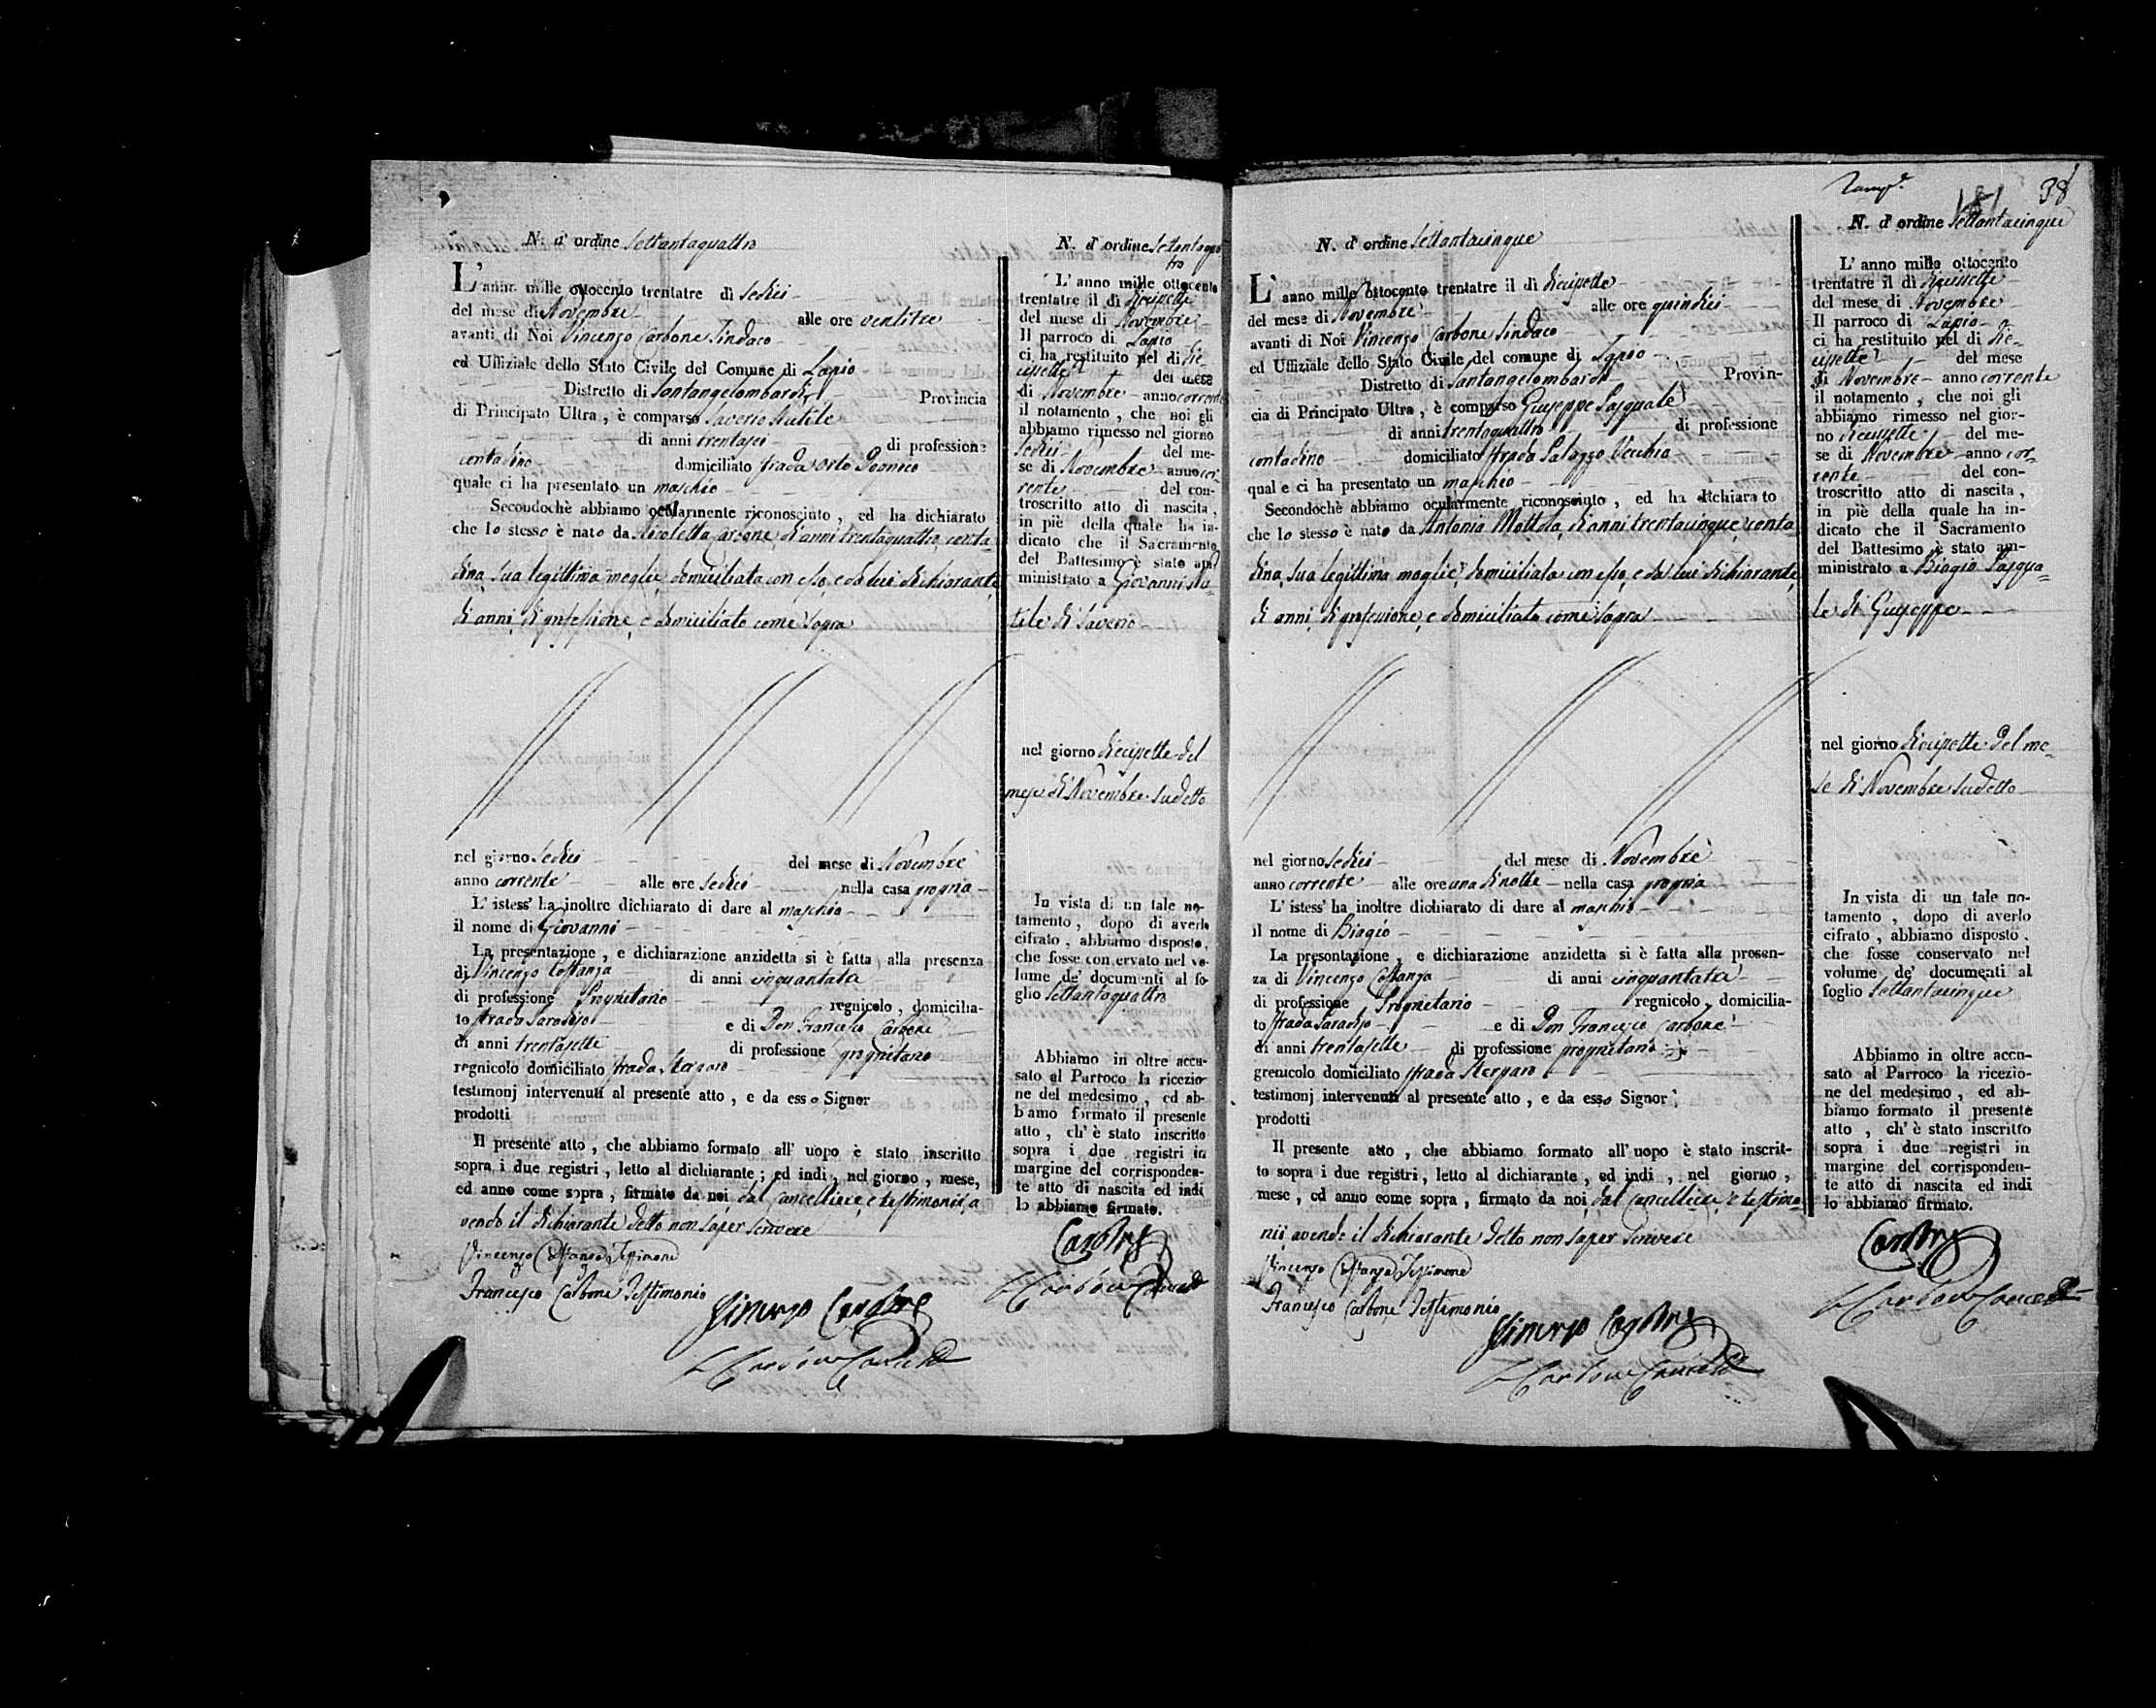 N. d' ordine Settantaquattro
L' anno mille ottocento trentatre dì Sedici
del mese di Novembre alle ore ventitre
avanti di Noi Vincenzo Carbone Sindaco
ed Uffiziale dello Stato Civile del Comune di Lapio
Distretto di Santangelombardi Provincia
di Principato Ultra, è comparso Saverio
di anni trentasei di professione
contadino domiciliato strada Orto
quale ci ha presentato un maschio
Secondochè abbiamo ocularmente riconosciuto, ed ha dichiarato
che lo stesso è nato da Nicoletta Carbone, di anni trentaquattro, conta-
dina, sua legittima moglie, domiciliata con esso, e da lui dichiarante
di anni, di professione, e domiciliato come sopra
nel giorno Sedici del mese di Novembre
anno corrente alle ore sedici nella casa propria
L' istess' ha inoltre dichiarato di dare al maschio
il nome di Giovanni
La presentazione, e dichiarazione anzidetta si è fatta alla presenza
di Vincenzo Costanza di anni cinquantatre
di professione Proprietario regnicolo, domicilia-
to strada Paradiso e di Don Francesco Carbone
di anni trentasette di professione proprietario
regnicolo domiciliato strada
testimonj intervenuti al presente atto, e da esso Signor
prodotti
Il presente atto, che abbiamo formato all' uopo è stato inscritto
sopra i due registri, letto al dichiarante; ed indi, nel giorno, mese,
ed anno come sopra, firmato da noi, dal Cancelliere, e testimonii, a
vendo il dichiarante detto non saper scrivere
Vincenzo Costanza Testimone
Francesco Carbone Testimonio
Vincenzo Carbone
Carbone Cancell
N. d' ordine Settantaquat
tro
L' anno mille ottocento
trentatre il dì diecisette
del mese di Novembre
Il parroco di Lapio
ci ha restituito nel dì die-
cisette del mese
di Novembre anno corrente
il notamento, che noi gli
abbiamo rimesso nel giorno
Sedici del me-
se di Novembre anno cor-
rente del con-
troscritto atto di nascita,
in piè della quale ha in-
dicato che il Sacramento
del Battesimo è stato am-
ministrato a Giovanni
di Saverio
nel giorno diecisette del
mese di Novembre sudetto
In vista di un tale no-
tamento, dopo di averlo
cifrato, abbiamo disposto,
che fosse conservato nel vo-
lume de' documenti al fo-
glio Settantaquattro
Abbiamo in oltre accu-
sato al Parroco la ricezio-
ne del medesimo, ed ab-
biamo formato il presente
atto, ch' è stato inscritto
sopra i due registri in
margine del corrisponden-
te atto di nascita ed indi
lo abbiamo firmato.
Carbone
Carbone Cancell
181 38
N. d' ordine Settantacinque
L' anno mille ottocento trentatre il dì diecisette
del mese di Novembre alle ore quindici
avanti di Noi Vincenzo Carbone Sindaco
ed Uffiziale dello Stato Civile del comune di Lapio
Distretto di Santangelombardi Provin-
cia di Principato Ultra, è comparso Giuseppe Pasquale
di anni trentaquattro di professione
contadino domiciliato strada Palazzo Vecchio
quale ci ha presentato un maschio
Secondochè abbiamo ocularmente riconosciuto, ed ha dichiarato
che lo stesso è nato da Antonia Mottola, di anni trentacinque, conta-
dina, sua legittima moglie, domiciliata con esso, e da lui dichiarante
di anni, di professione, e domiciliato come sopra
nel giorno Sedici del mese di Novembre
anno corrente alle ore una di notte nella casa propria
L' istess' ha inoltre dichiarato di dare al maschio
il nome di Biagio
La presentazione, e dichiarazione anzidetta si è fatta alla presen-
za di Vincenzo Costanza di anni cinquantatre
di professione Proprietario regnicolo, domicilia-
to strada Paradiso e di Don Francesco Carbone
di anni trentasette di professione proprietario
grenicolo domiciliato strada
testimonj intervenuti al presente atto, e da esso Signor
prodotti
Il presente atto, che abbiamo formato all' uopo è stato inscrit-
to sopra i due registri, letto al dichiarante, ed indi, nel giorno,
mese, ed anno come sopra, firmato da noi, dal Cancelliere, e testimo
nii, avendo il dichiarante detto non saper scrivere
Vincenzo Costanza Testimone
Francesco Carbone Testimonio
Vincenzo Carbone
Carbone Cancell
N. d' ordine Settantacinque
L' anno mille ottocento
trentatre il dì diecisette
del mese di Novembre
Il parroco di Lapio
ci ha restituito nel dì die-
cisette del mese
di Novembre anno corrente
il notamento, che noi gli
abbiamo rimesso nel gior-
no diecisette del me-
se di Novembre anno cor-
rente del con-
troscritto atto di nascita,
in piè della quale ha in-
dicato che il Sacramento
del Battesimo è stato am-
ministrato a Biagio Pasqua-
le di Giuseppe
nel giorno diecisette del me-
se di Novembre sudetto
In vista di un tale no-
tamento, dopo di averlo
cifrato, abbiamo disposto,
che fosse conservato nel
volume de' documenti al
foglio Settantacinque
Abbiamo in oltre accu-
sato al Parroco la ricezio-
ne del medesimo, ed ab-
biamo formato il presente
atto, ch' è stato inscritto
sopra i due registri in
margine del corrisponden-
te atto di nascita ed indi
lo abbiamo firmato.
Carbone
Carbone Cancell